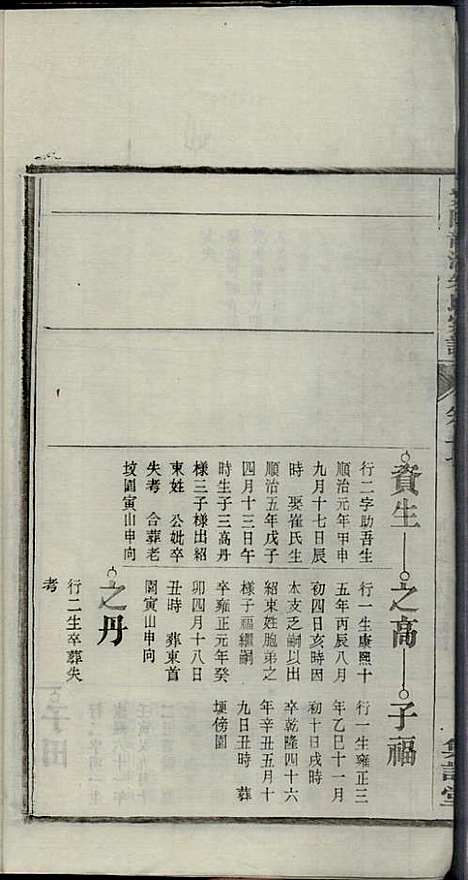 資生
行二字助吾生
順治元年甲申
九月十七日辰
時 娶崔氏生
順治五年戊子
四月十三日午
時生子三高丹
樣三子樣出紹
東姓 公妣卒
失考 合葬老
坟園寅山申向
之高
行一生康熙十
五年丙辰八月
初四日亥時因
本支乏嗣以出
紹東姓胞弟之
樣子福繼嗣
卒雍正元年癸
卯四月十八日
丑時 葬東首
園寅山申向
之丹
行二生卒葬失
考
子福
行一生雍正三
年乙巳十一月
初十日戌時
卒乾隆四十六
年辛丑五月十
九日丑時 葬
埂傍園